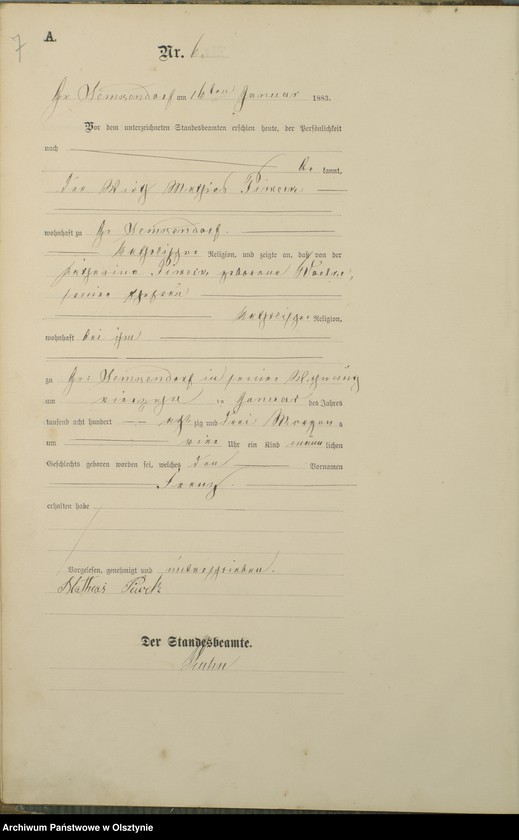 7
A.
Nr. 6.
Gr Lemkendorf am 16ten Januar 1883.
Vor dem unterzeichneten Standesbeamten erschien heute, der Persönlichkeit
nach
be kannt,
der Wirth Mathias
wohnhaft zu Gr Lemkendorf
katholischer Religion, und zeigte an, daß von der
Katharina geborene
seiner Ehefrau
katholischer Religion,
wohnhaft bei ihm
zu Gr: Lemkendorf in seiner Wohnung
am vierzehn ten Januar des Jahres
tausend acht hundert achtzig und drei Morgens
um vier Uhr ein Kind männlichen
Geschlechts geboren worden sei, welches den Vornamen
Franz
erhalten habe
Vorgelesen, genehmigt und unterschrieben.
Mathias
Der Standesbeamte.
Archiwum Państwowe w Olsztynie